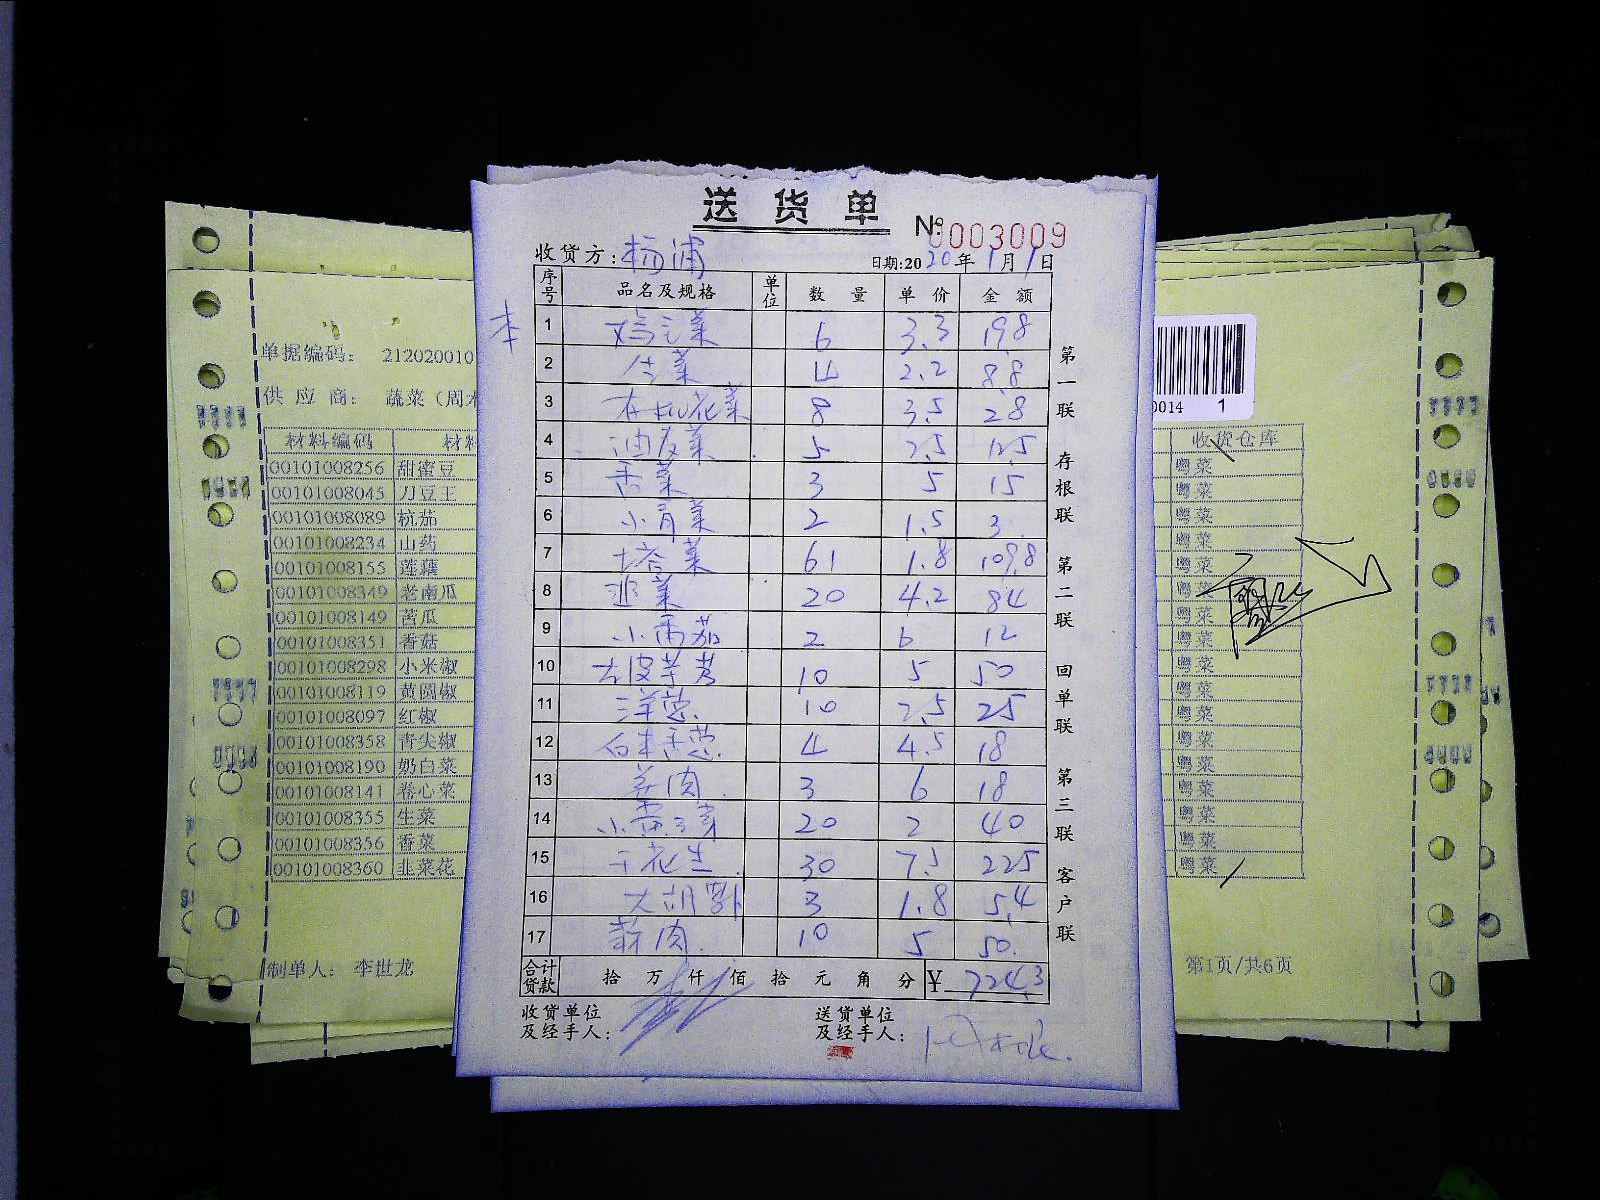 送货单
№ 0003009
收货方: 杨浦 日期:2020年1月1日
序号 品名及规格 单位 数量 单价 金额
1 鸡毛菜 6 3.3 19.8
2 生菜 4 2.2 8.8
3 有机花菜 8 3.5 28
4 油麦菜 5 2.5 12.5
5 香菜 3 5 15
6 小青菜 2 1.5 3
7 塔菜 61 1.8 109.8
8 韭菜 20 4.2 84
9 小番茄 2 6 12
10 去皮芋艿 10 5 50
11 洋葱 10 2.5 25
12 4 4.5 18
13 姜肉 3 6 18
14 20 2 40
15 干花生 30 7.5 225
16 大胡萝卜 3 1.8 5.4
17 蒜肉 10 5 50
合计货款 拾 万 仟 佰 拾 元 角 分 ¥ 724.3
收货单位及经手人: 送货单位及经手人:
第一联 存根联 第二联 回单联 第三联 客户联
单据编码: 212020010
供应商: 蔬菜（周
材料编码 材料
00101008256 甜蜜豆
00101008045 刀豆王
00101008089 杭茄
00101008234 山药
00101008155 莲藕
00101008349 老南瓜
00101008149 苦瓜
00101008351 香菇
00101008298 小米椒
00101008119 黄圆椒
00101008097 红椒
00101008358 青尖椒
00101008190 奶白菜
00101008141 卷心菜
00101008355 生菜
00101008356 香菜
00101008360 韭菜花
制单人: 李世龙
0014 1
收货仓库
粤菜
粤菜
粤菜
粤菜
粤菜
粤菜
粤菜
粤菜
粤菜
粤菜
粤菜
粤菜
粤菜
粤菜
粤菜
粤菜
粤菜
第1页/共6页